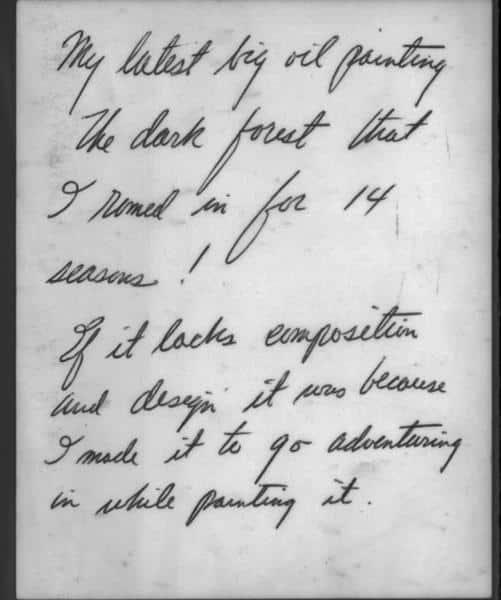 My latest big oil painting
The dark forest that
I romed in for 14
seasons !
If it lacks composition
and design it was because
I made it to go adventuring
in while painting it.